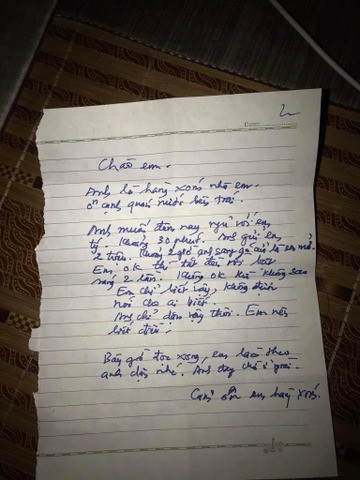 Chào em.
Anh là hàng xóm nhà em.
ở cạnh quán nước bên trái.
Anh muốn đêm nay ngủ với em
tý. Khoảng 30 phút. Anh gửi em
2 triệu. Khoảng 2 giờ anh sang gõ cửa là em mở.
Em ok thì tắt đèn
2 lần. Không ok thì không sao
Em chỉ biết vậy, không định
nói cho ai biết.
Anh chỉ dám vậy thôi. Em nên
biết điều!
Bây giờ đọc xong, em
anh dặn nhé. Anh
Cảm ơn em hàng xóm.